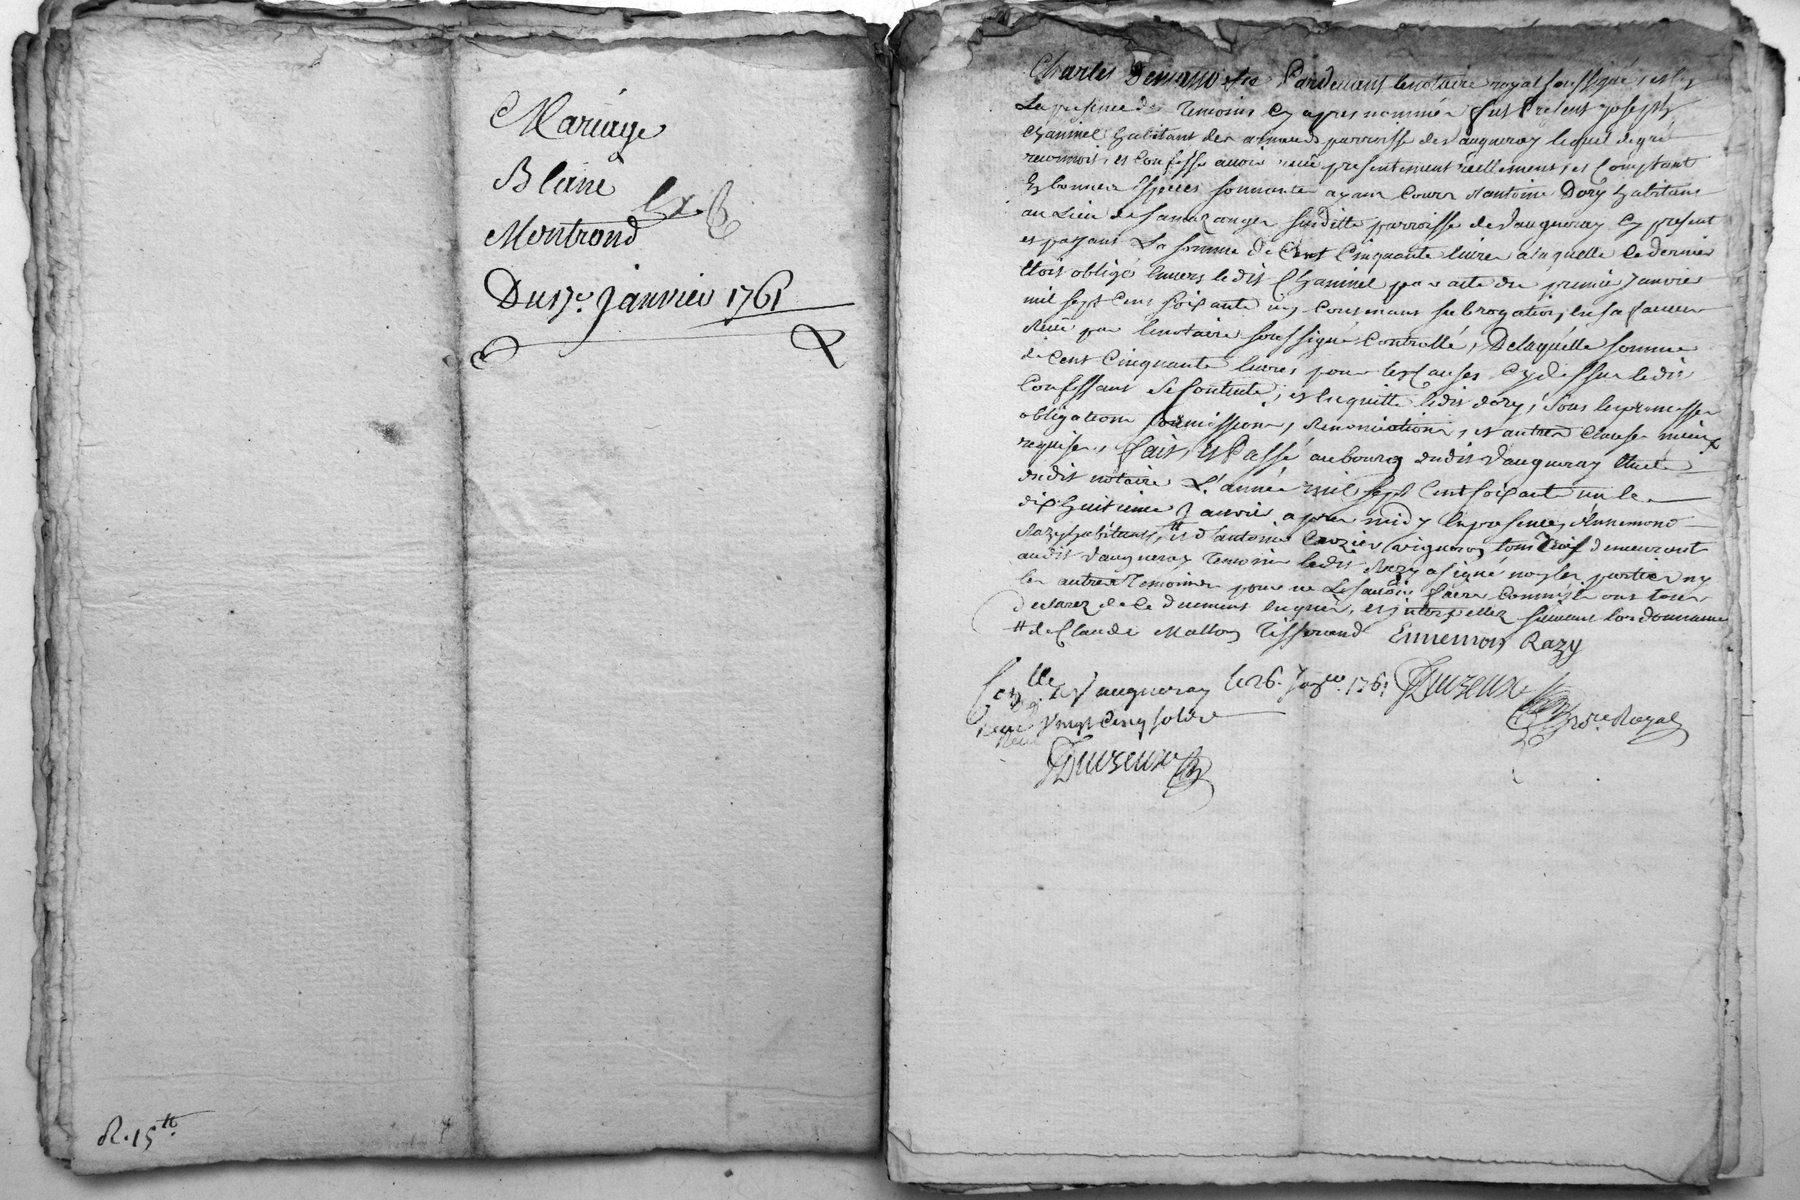 Mariage
Blanc
Montrond
Du 17e. Janvier 1761
R. 15tt
Charles Pardevant le notaire royal soussigné, et en
La presence des Temoins cy apres nommés fut Present joseph
Chaminel habitant des parroisse de vaugneray lequel de gré
reconnoit, et confesse avoir reçu presentement réellement, et Comptant
En bonnes Especes sonnante ayant Cours d'antoine Dory habitant
au Lieu de susditte parroisse de Vaugneray Cy present
et payant La somme de Cent Cinquante livres a laquelle ce dernier
Etoit obligé Envers ledit Chaminel par acte du premier Janvier
mil sept Cent soixante un, Contenant subrogation, en sa faveur
Reçu par le notaire soussigné Controllé, De laquelle somme
de Cent Cinquante livres pour les Causes Cy dessus ledit
Confessant se Contente, et En quitte ledit dory, sous les promesses
obligations soumissions, renonciations, et autres Clauses mieux
requises, fait, Et Passé au bourg dudit Vaugneray Etude
dudit notaire L'année mil sept Cent soixante un le
dix huitieme Janvier apres midy En presence, d'Annemond
Razy habitant, tt et d'antoine Crozier vigneron tous deux demeurant
audit Vaugneray Temoins ledit Razy a signé non les parties ny
les autres Temoins pour ne le savoir faire Comme ils ont tous
declarez de Ce Duement Enquis, et interpellez suivant l'ordonnance
tt de Claude Mathon Tisserand Ennemon Razy
Conllé. a Vaugneray le 26. Janvier. 1761 Duvseux
Reçu Vingt Cinq sols nore. Royal
Duvseux